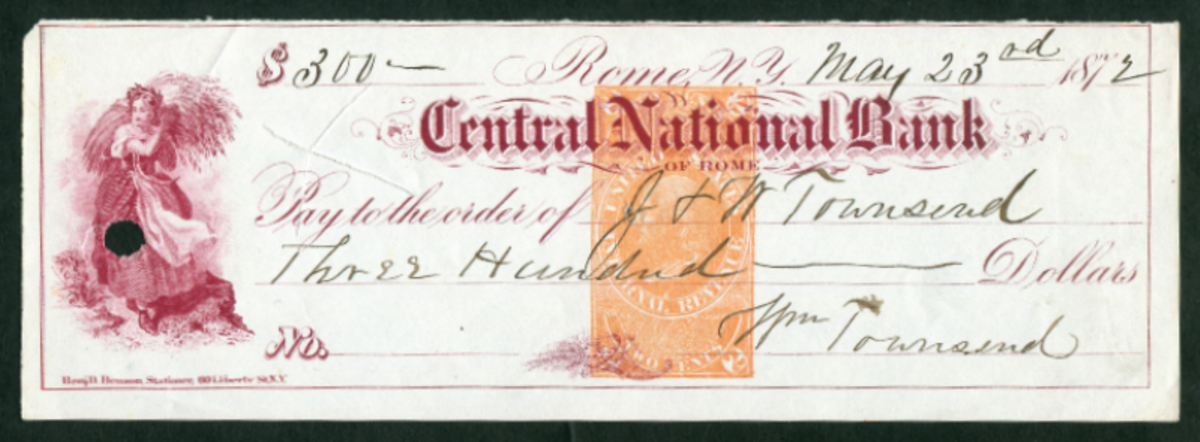 $300— Rome, N.Y. May 23rd 1872
Central National Bank
OF ROME
Pay to the order of J & W Townsend
Three Hundred — Dollars
Wm Townsend
No.
UNITED STATES
INTERNAL REVENUE
TWO CENTS 2
Benj. D. Benson, Stationer, 60 Liberty St. N.Y.